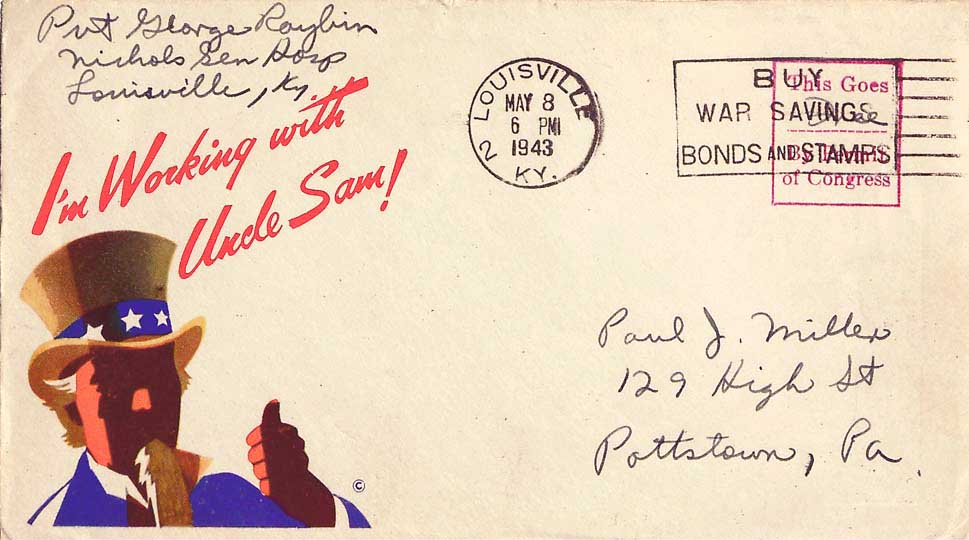 Pvt George Raybin
Nichols Gen Hosp
Louisville, Ky.
I'm Working with
Uncle Sam!
©
LOUISVILLE
MAY 8
6 PM
1943
2 KY.
BUY
WAR SAVINGS
BONDS AND STAMPS
This Goes
Free
of Congress
Paul J. Miller
129 High St
Pottstown, Pa.